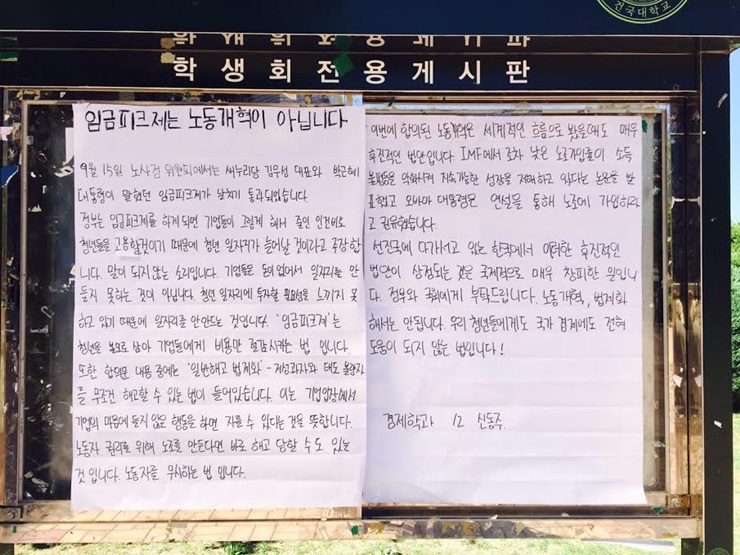 건국대학교
학생회전용게시판
임금피크제는 노동개혁이 아닙니다
9월 15일 노사정 위원회에서는 새누리당 김무성 대표와 박근혜
대통령이 말했던 임금피크제가 날치기 통과되었습니다.
정부는 임금피크제를 하게 되면 기업들이 그렇게 해서 줄인 인건비로
청년들을 고용할것이기 때문에 청년 일자리가 늘어날 것이라고 주장합
니다. 말이 되지 않는 소리입니다. 기업들은 돈이 없어서 일자리를 만
들지 못하는 것이 아닙니다. 청년 일자리에 투자할 필요성을 느끼지 못
하고 있기 때문에 일자리를 안만드는 것입니다. '임금피크제'는
청년을 볼모로 삼아 기업들에게 비용만 절감시키는 법 입니다.
또한 합의문 내용 중에는 '일반해고 법제화' - 저성과자와 태도 불량자
를 무조건 해고할 수 있는 법이 들어있습니다. 이는 기업입장에서
기업의 마음에 들지 않은 행동을 하면 자를 수 있다는 것을 뜻합니다.
노동자 권리를 위해 노조를 만든다면 바로 해고 당할 수도 있는
것 입니다. 노동자를 무시하는 법 입니다.
이번에 합의된 노동개혁은 세계적인 흐름으로 봤을때도 매우
후진적인 법안입니다. IMF에서 조차 낮은 노조가입률이 소득
불평등을 악화시켜 지속가능한 성장을 저해하고 있다는 논문을 발
표했고 오바마 대통령은 연설을 통해 노조에 가입하라
고 권유했습니다.
선진국에 다가서고 있는 한국에서 이러한 후진적인
법안이 상정되는 것은 국제적으로 매우 창피한 일입니
다. 정부와 국회에게 부탁드립니다. 노동개혁, 법제화
해서는 안됩니다. 우리 청년들에게도 국가 경제에도 전혀
도움이 되지 않는 법입니다!
경제학과 12 신동주.